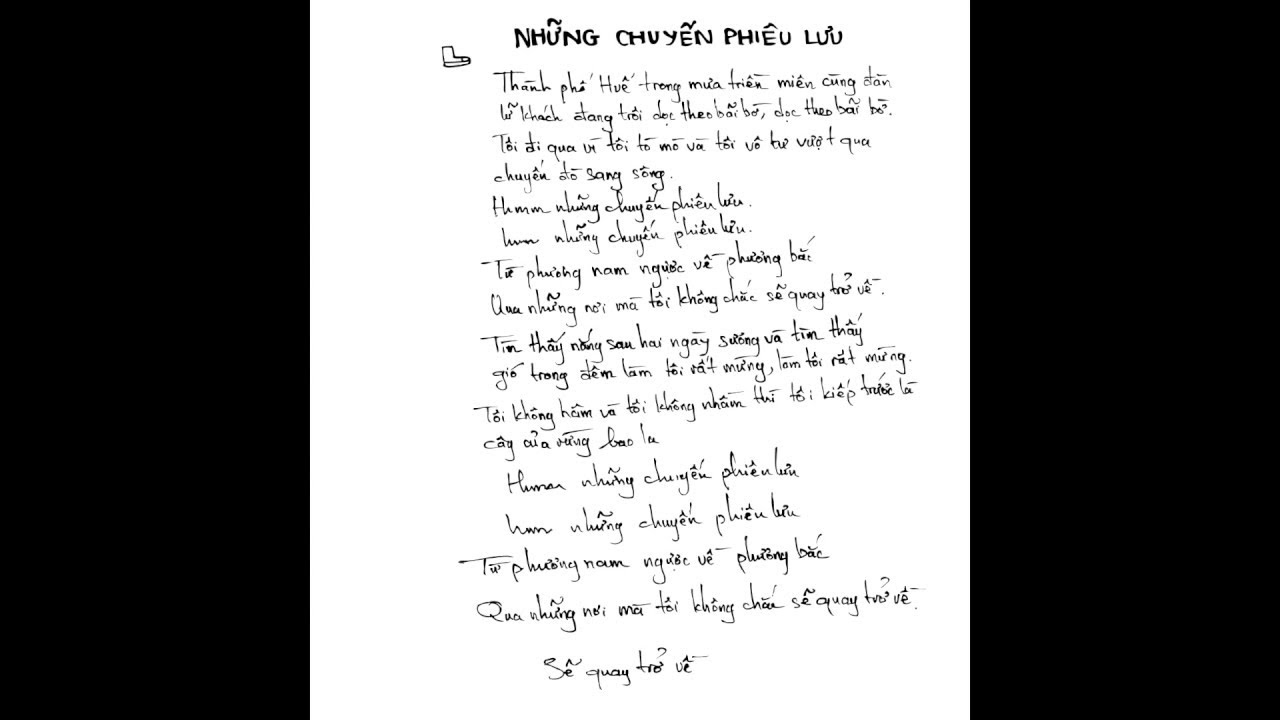 NHỮNG CHUYẾN PHIÊU LƯU
Thành phố Huế trong mưa triền miên cùng đàn
lữ khách đang trôi dọc theo bãi bờ, dọc theo bãi bờ.
Tôi đi qua vì tôi tò mò và tôi vô tư vượt qua
chuyến đò sang sông.
Hmm những chuyến phiêu lưu.
hmm những chuyến phiêu lưu.
Từ phương nam ngược về phương bắc
Qua những nơi mà tôi không chắc sẽ quay trở về.
Tìm thấy nắng sau hai ngày sương và tìm thấy
gió trong đêm làm tôi rất mừng, làm tôi rất mừng.
Tôi không hâm và tôi không nhầm thì tôi kiếp trước là
cây của rừng bao la
Hmm những chuyến phiêu lưu
hmm những chuyến phiêu lưu
Từ phương nam ngược về phương bắc
Qua những nơi mà tôi không chắc sẽ quay trở về.
Sẽ quay trở về